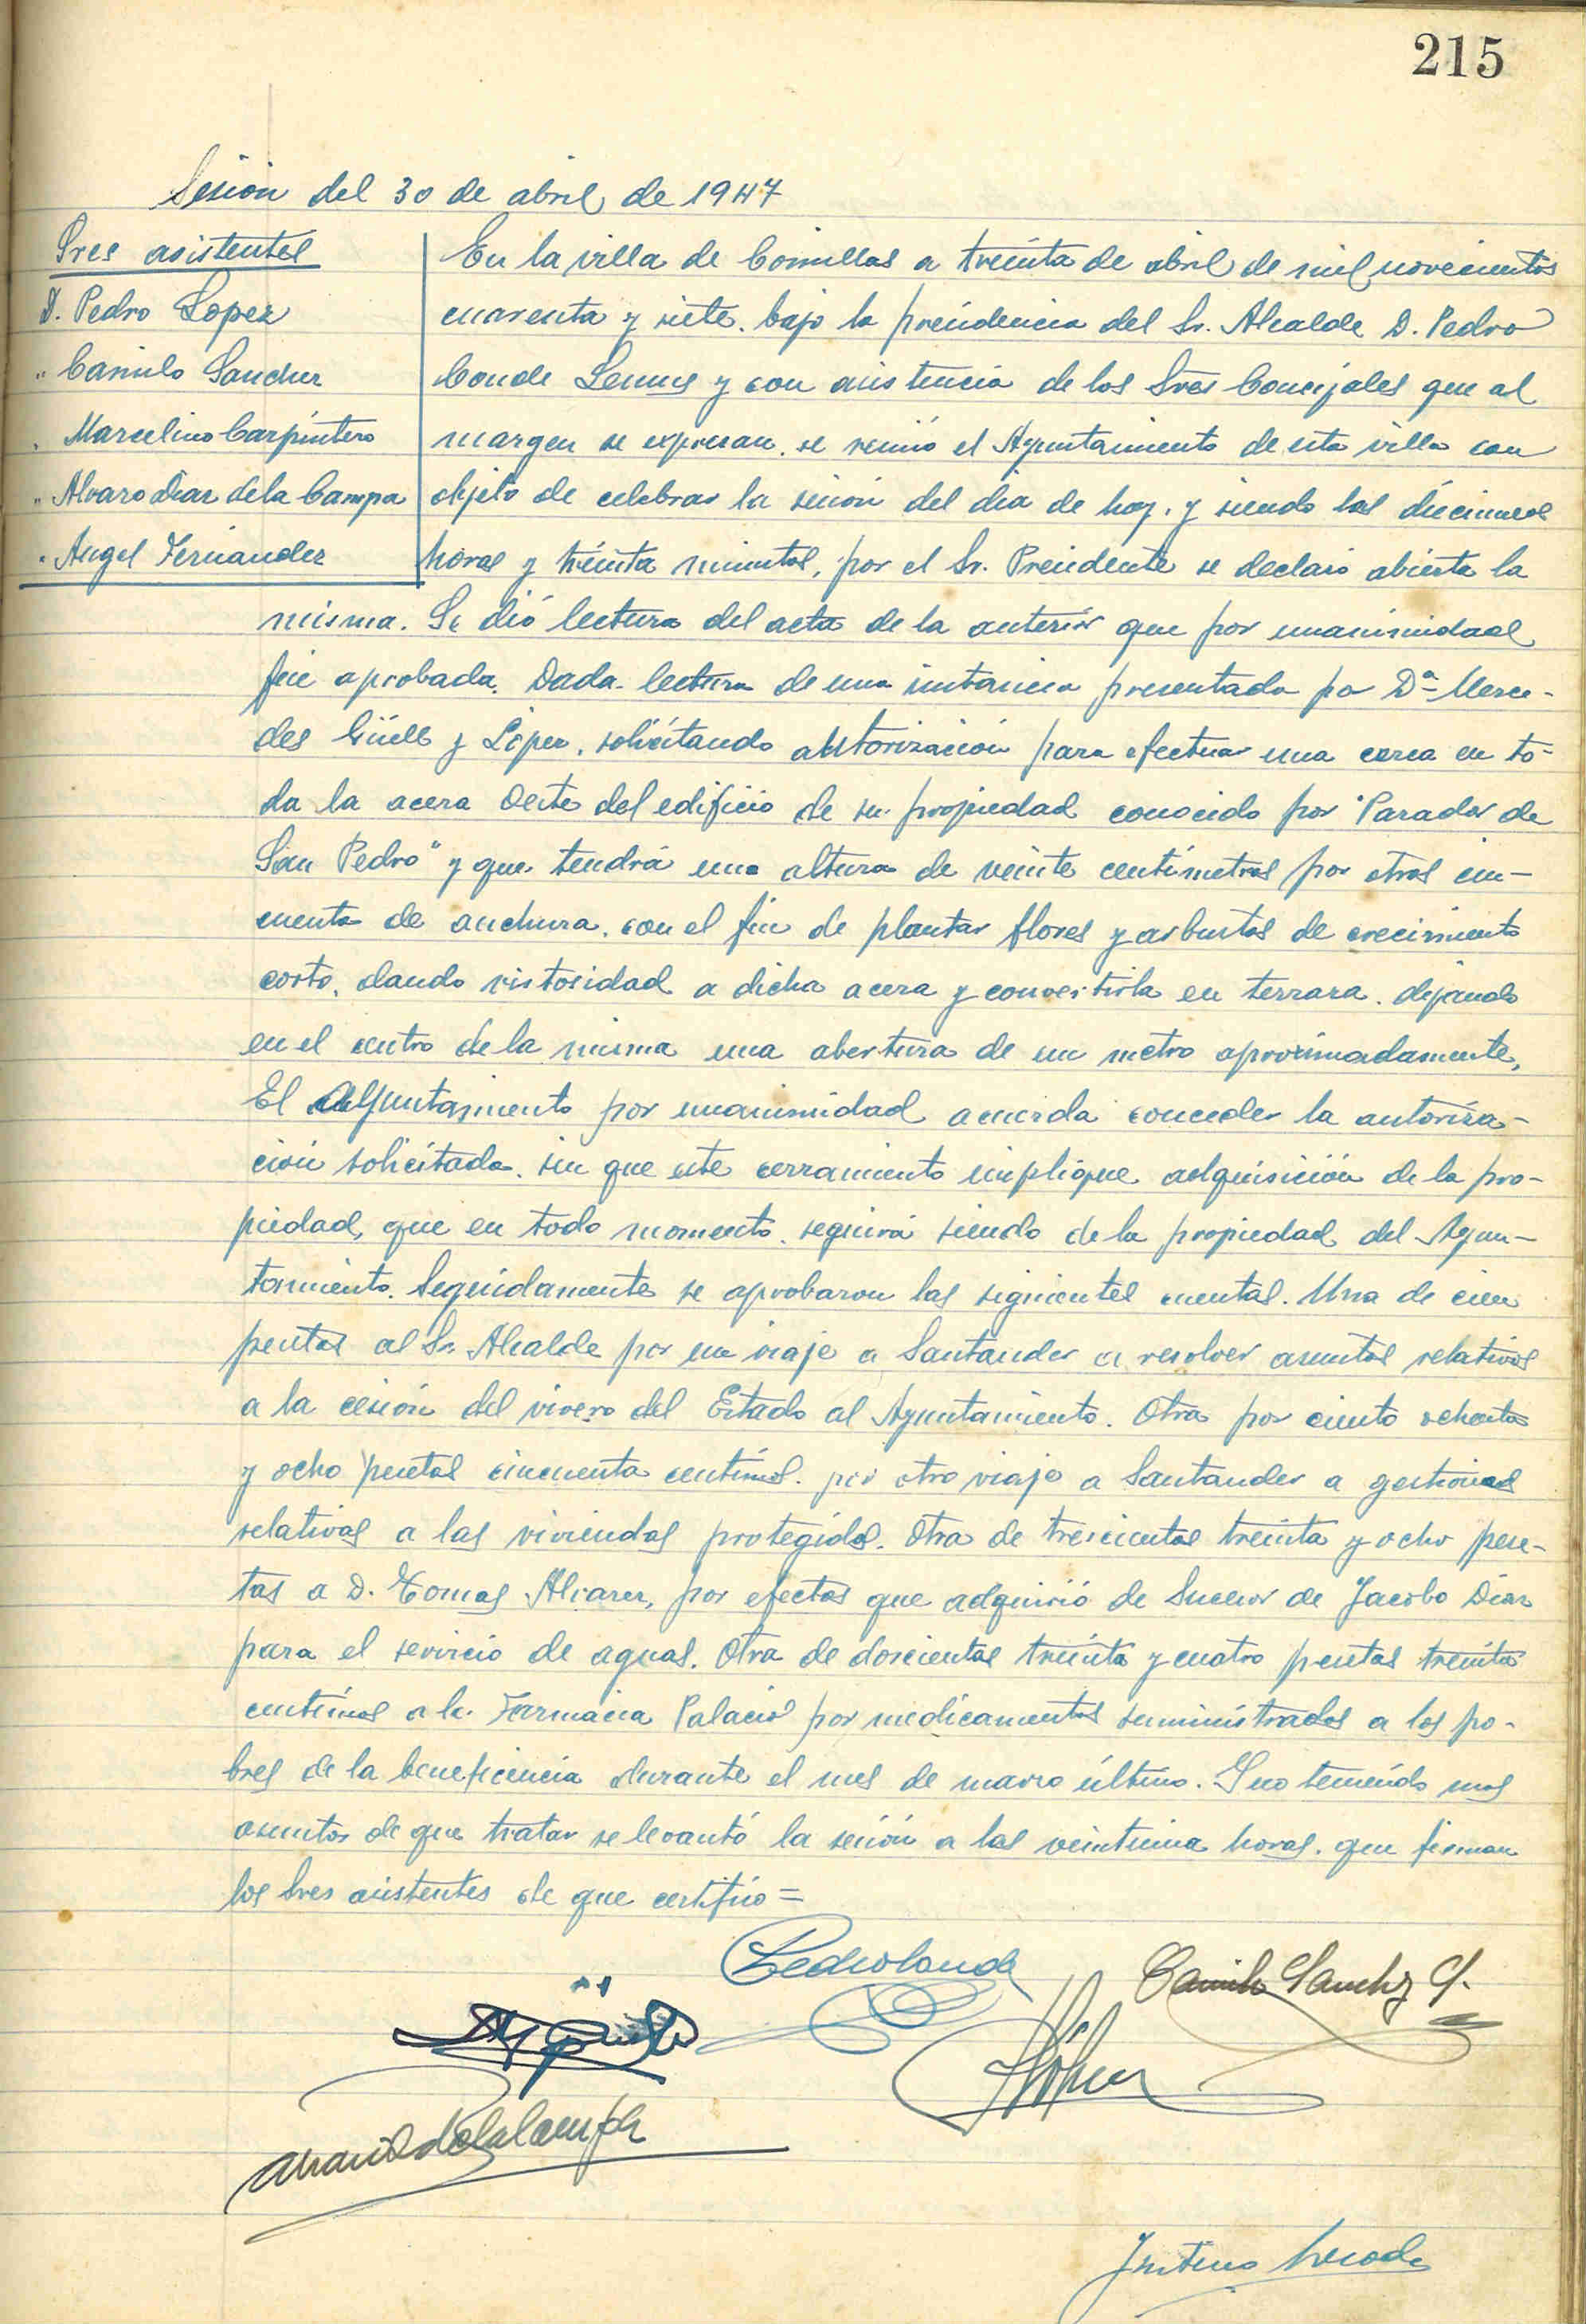 215
Sesion del 30 de abril de 1947
Sres asistentes
D. Pedro Lopez
" Camilo Sanchez
" Marcelino Carpintero
" Alvaro diaz de la Campa
" Angel Fernandez
En la villa de Comillas a treinta de abril de mil novecientos
cuarenta y siete. bajo la presidencia del Sr. Alcalde D. Pedro
Conde Lemus y con asistencia de los Sres Concejales que al
margen se expresan. se reunió el Ayuntamiento de esta villa con
objeto de celebrar la sesión del dia de hoy. y siendo las diecinueve
horas y treinta minutos, por el Sr. Presidente se declaró abierta la
misma. Se dió lectura del acta de la anterior que por unanimidad
fue aprobada. Dada lectura de una instancia presentada por Dª Merce-
des Güell y López, solicitando autorización para efectuar una cerca en to-
da la acera Oeste del edificio de su propiedad conocido por "Parador de
San Pedro" y que tendrá una altura de veinte centímetros por otros cin-
cuenta de anchura. con el fin de plantar flores y arbustos de crecimiento
corto, dando vistosidad a dicha acera y convertirla en terraza. dejando
en el centro de la misma una abertura de un metro aproximadamente.
El Ayuntamiento por unanimidad acuerda conceder la autoriza-
ción solicitada. sin que este cerramiento implique adquisición de la pro-
piedad, que en todo momento. seguirá siendo de la propiedad del Ayun-
tamiento. Seguidamente se aprobaron las siguientes cuentas. Una de cien
pesetas al Sr. Alcalde por un viaje a Santander a resolver asuntos relativos
a la cesión del vivero del Estado al Ayuntamiento. Otra por ciento ochenta
y ocho pesetas cincuenta centimos. por otro viaje a Santander a gestiones
relativas a las viviendas protegidas. Otra de trescientas treinta y ocho pese-
tas a D. Tomas Alvarez, por efectos que adquirió de Sucesor de Jacobo Diaz
para el sevircio de aguas. Otra de doscientas treinta y cuatro pesetas treinta
centimos a la Farmacia Palacio por medicamentos suministrados a los po-
bres de la beneficencia durante el mes de marzo último. Y no teniendo mas
asuntos de que tratar se levantó la sesión a las veintiuna horas. que firman
los Sres asistentes de que certifico =
Pedro Conde
Camilo Sanchez G.